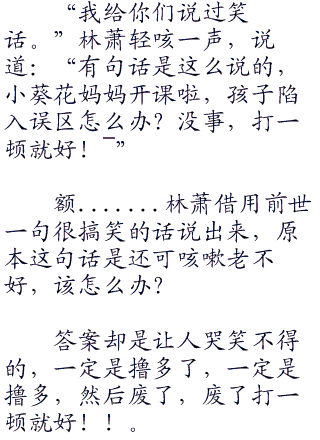 “我给你们说过笑
话。”林萧轻咳一声，说
道：“有句话是这么说的，
小葵花妈妈开课啦，孩子陷
入误区怎么办？没事，打一
顿就好！¯”
额.......林萧借用前世
一句很搞笑的话说出来，原
本这句话是还可咳嗽老不
好，该怎么办？
答案却是让人哭笑不得
的，一定是撸多了，一定是
撸多，然后废了，废了打一
顿就好！！。